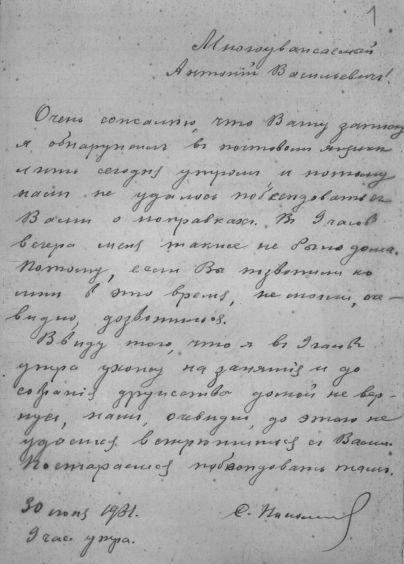 1
Многоуважаемый
Антоній Васильевич!
Очень сожалѣю, что Вашу записку
я обнаружилъ въ почтовомъ ящикѣ
лишь сегодня утромъ и потому
намъ не удалось побесѣдовать съ
Вами о поправкахъ. Въ 9 часовъ
вечера меня также не было дома.
Потому, если Вы и звонили ко
мнѣ въ это время, не могли, оче-
видно, дозвониться.
Ввиду того, что я въ 9 часовъ
утра ухожу на занятія и до
собранія дружества домой не вер-
нусь, намъ, очевидно, до этого не
удастся встрѣтиться съ Вами.
Постараемся побесѣдовать тамъ.
30 1931.
С.
9 час. утра.